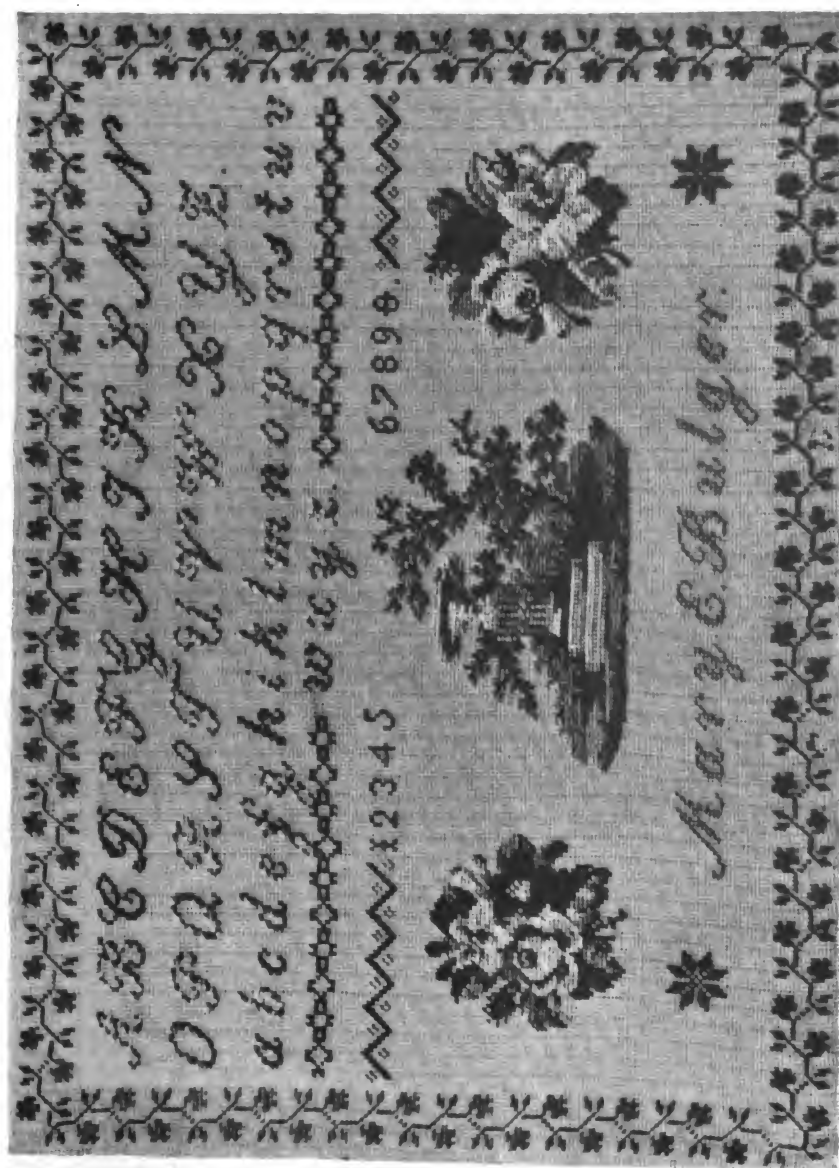 A B C D E F G H I K L M N
O P Q R S T U V W X Y Z.
a b c d e f g h i k l m n o p q r s t u v
w x y z.
12345 67890.
Mary E. Bulger.